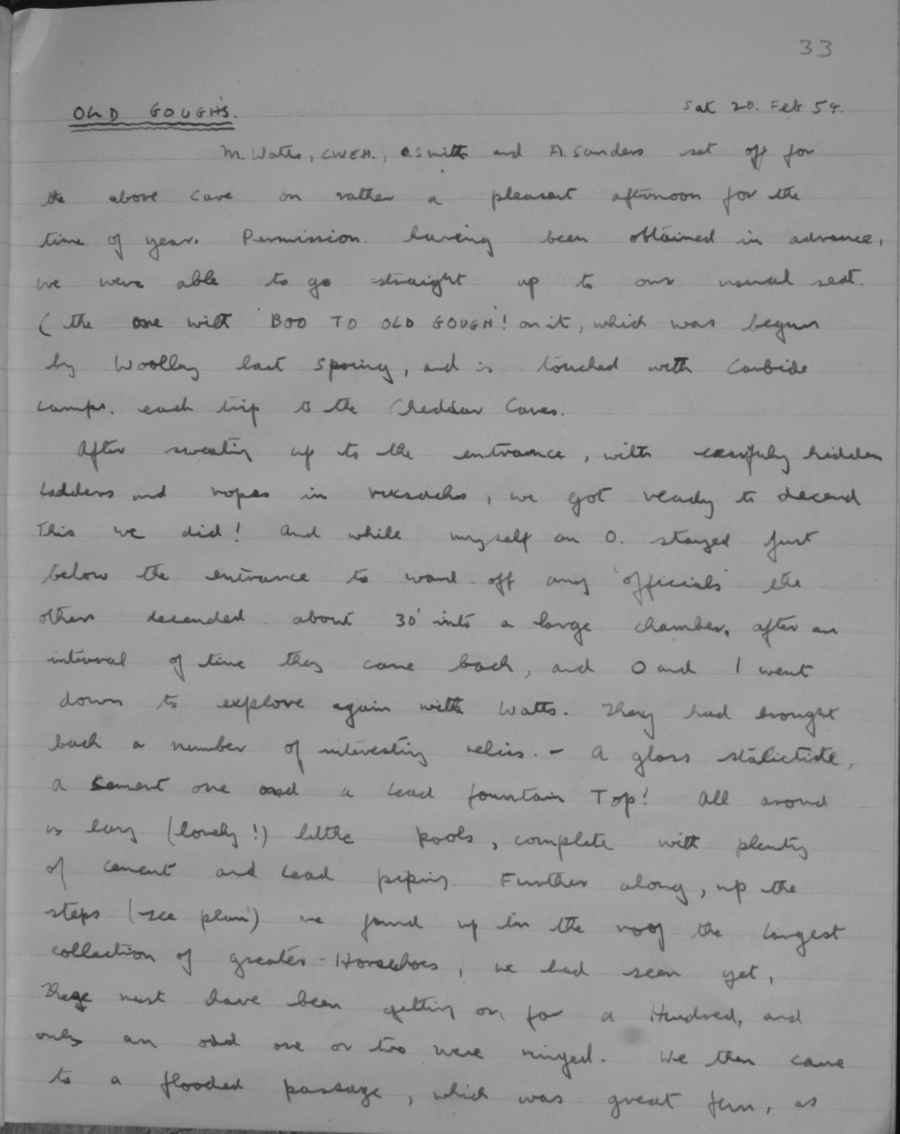 33
OLD GOUGH'S. Sat 20. Feb 54.
M. Watts, CWEH., C Smith and A. Sanders set off for
the above cave on rather a pleasant afternoon for the
time of year. Permission having been obtained in advance,
we were able to go straight up to our usual seat.
( the one with 'BOO TO OLD GOUGH'! on it, which was begun
by Woolley last spring, and is touched with Carbide
lamps. each trip to the Cheddar Caves.
After sweating up to the entrance, with hidden
Ladders and ropes in rucsachs, we got ready to decend
This we did! And while myself an O. stayed just
below the entrance to ward off any 'officials' the
others decended about 30' into a large chamber, after an
interval of time they came back, and O and I went
down to explore again with Watts. They had brought
back a number of interesting relics. - A glass stalictite,
a Cement one and a Lead fountain Top! All around
is (lovely!) little pools, complete with plenty
of cement and Lead piping Further along, up the
steps (see plan) we found up in the roof the Largest
collection of greater-Horseshoes, we had seen yet,
These must have been getting on for a Hundred, and
only an odd one or too were ringed. We then came
to a flooded passage, which was great fun, as